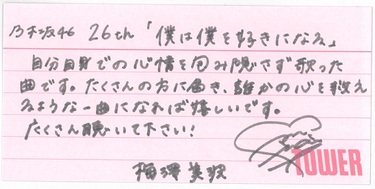 乃木坂46 26th 「僕は僕を好きになる」
自分自身での心情を包み隠さず歌った
曲です。たくさんの方に届き、誰かの心を救え
るような一曲になれば嬉しいです。
たくさん聴いて下さい!
梅澤美波
TOWER